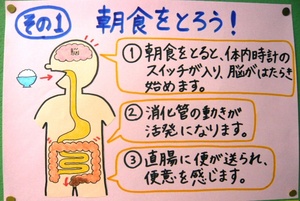 その1
朝食をとろう！
脳
① 朝食をとると、体内時計の
スイッチが入り、脳がはたらき
始めます。
② 消化管の動きが
活発になります。
③ 直腸に便が送られ、
便意を感じます。